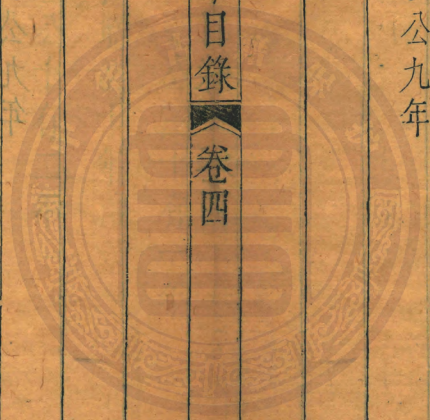 公九年
目錄
卷四